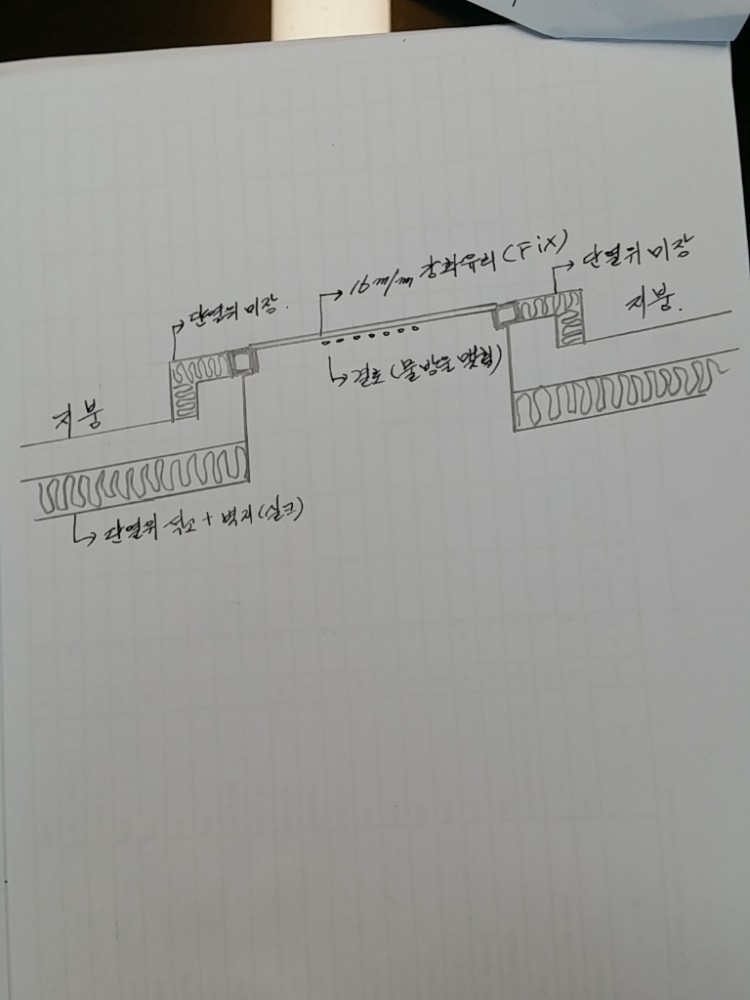 16 m/m 강화유리 (Fix)
단열위 미장
단열위 미장.
지붕.
결로 (물방울 맺힘)
지붕
단열위 석고 + 벽지 (실크)